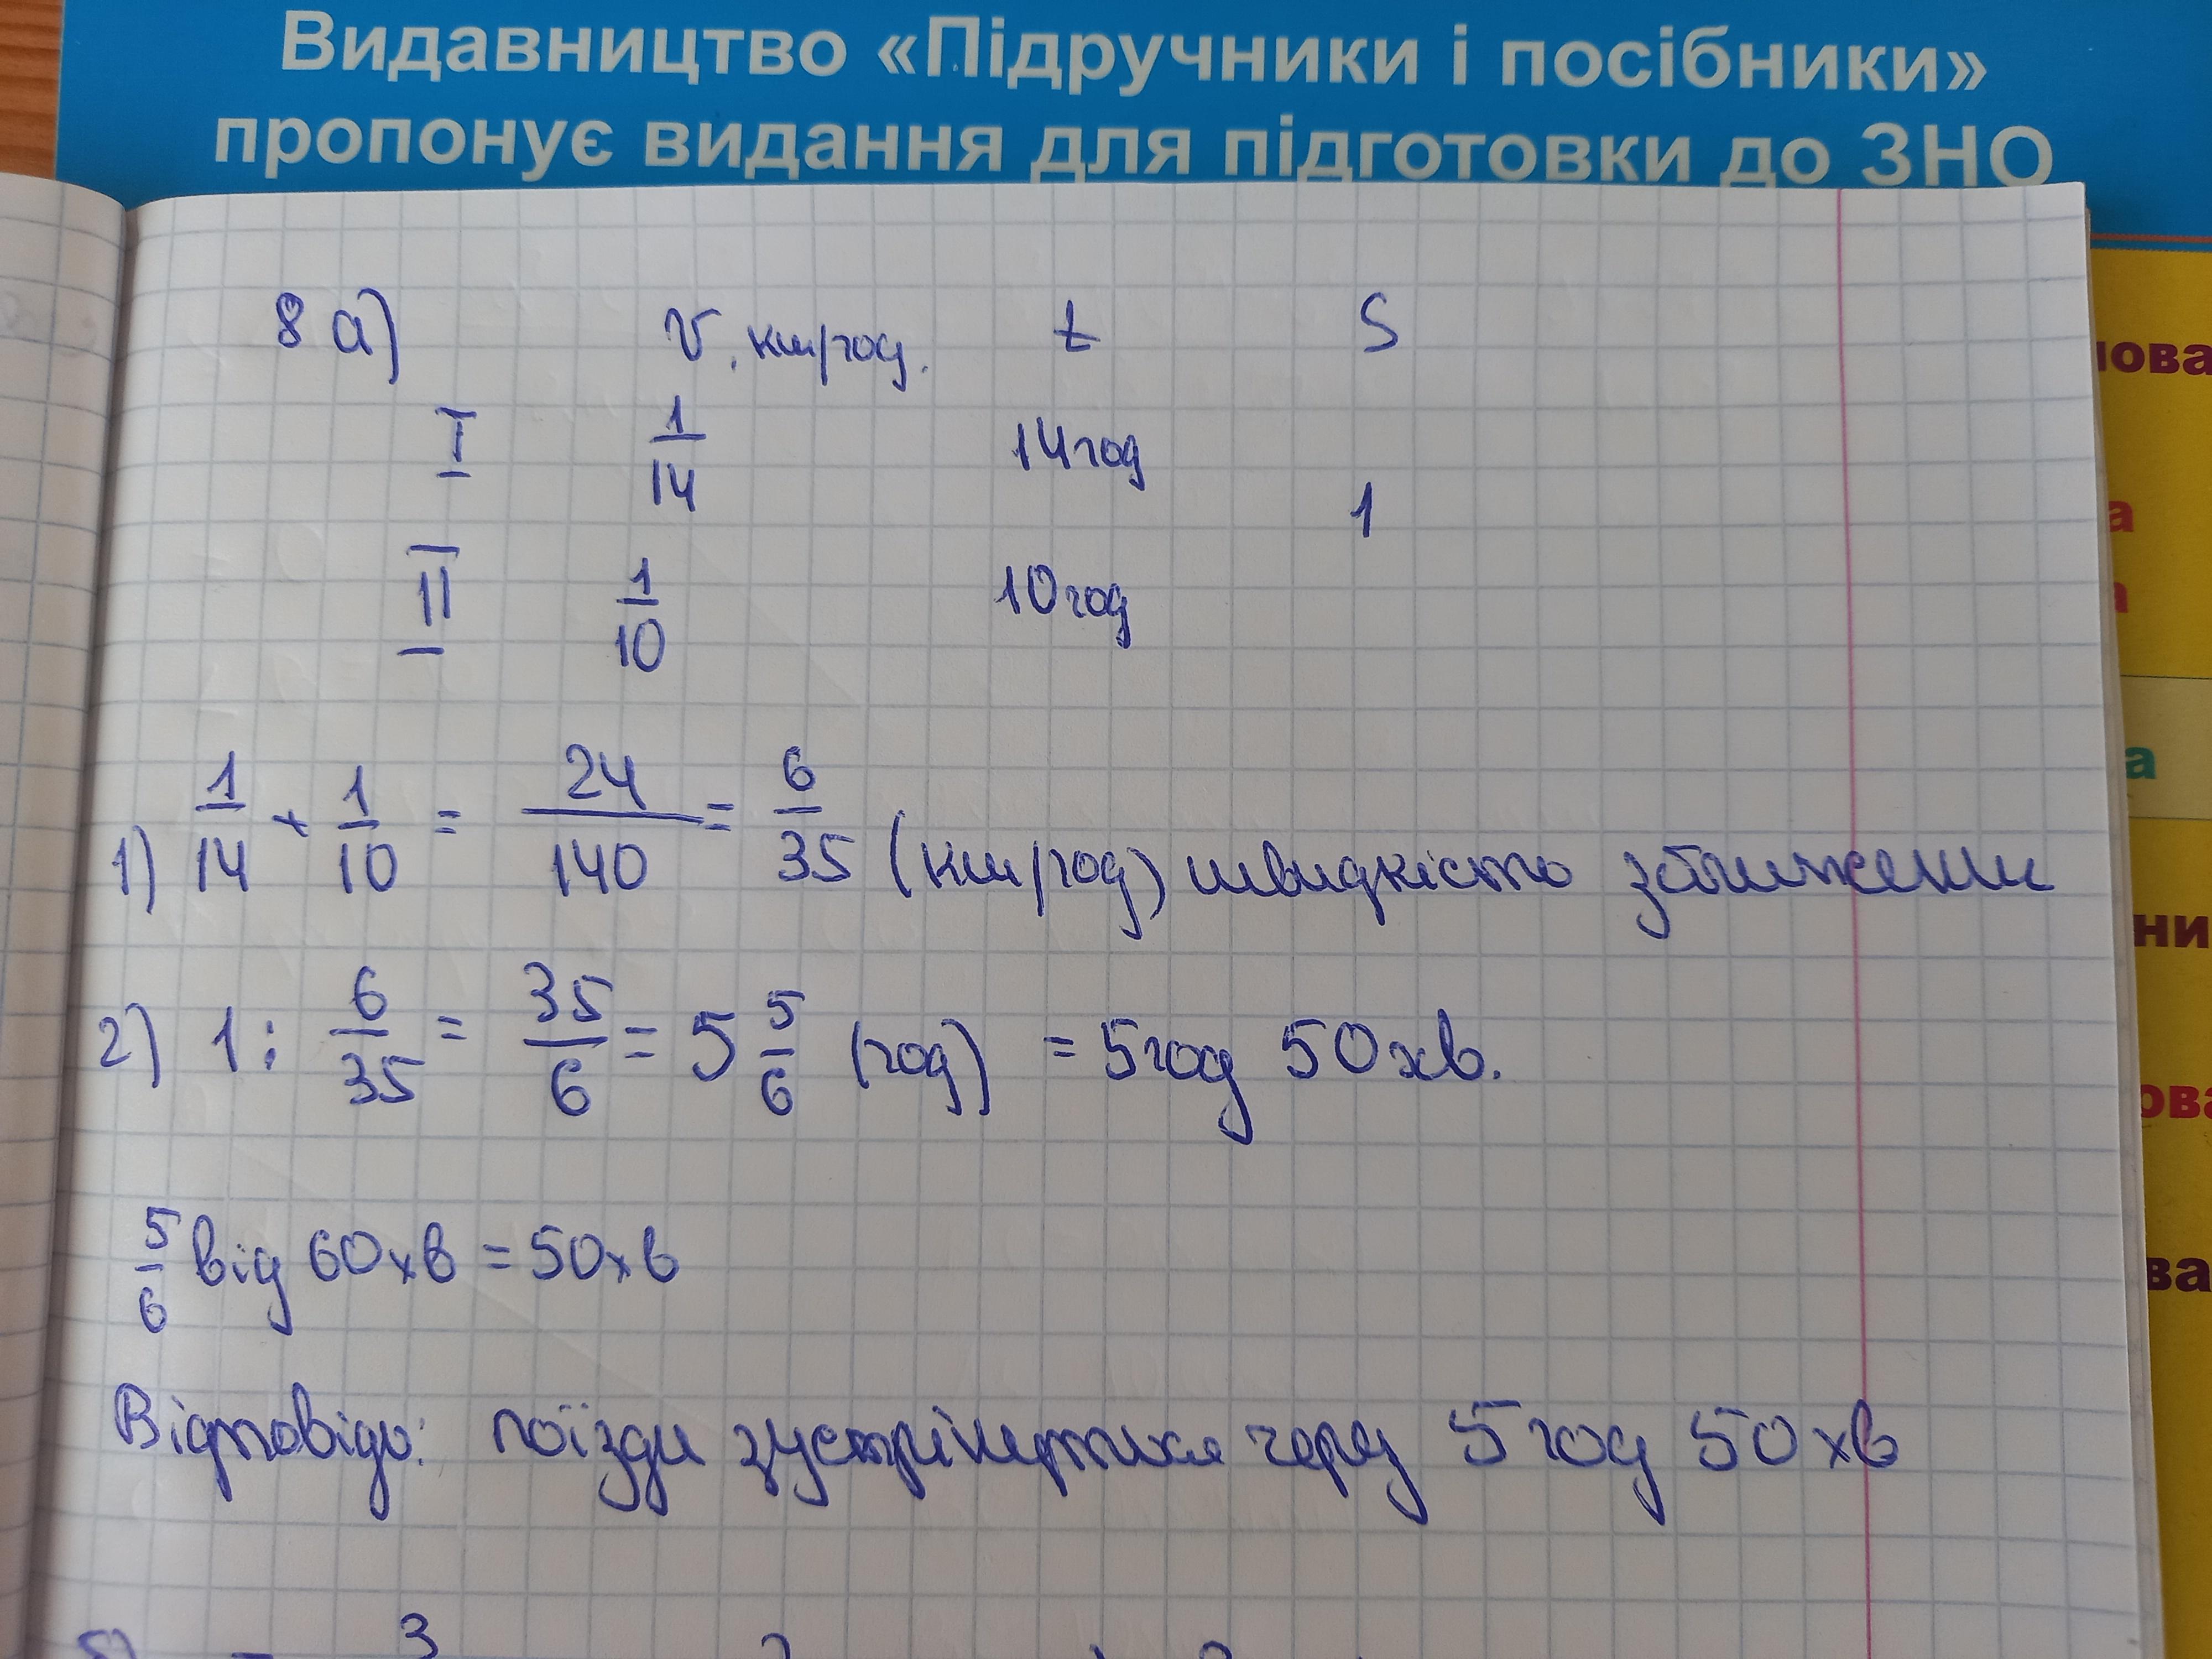 Видавництво «Підручники і посібники»
пропонує видання для підготовки до ЗНО
8 а) v, км/год. t S
I 1/14 14 год
1
II 1/10 10 год
1) 1/14 + 1/10 = 24/140 = 6/35 (км/год) швидкість зближення
2) 1 : 6/35 = 35/6 = 5 5/6 (год) = 5 год 50 хв.
5/6 від 60 хв = 50 хв
Відповідь: поїзди зустрінуться через 5 год 50 хв